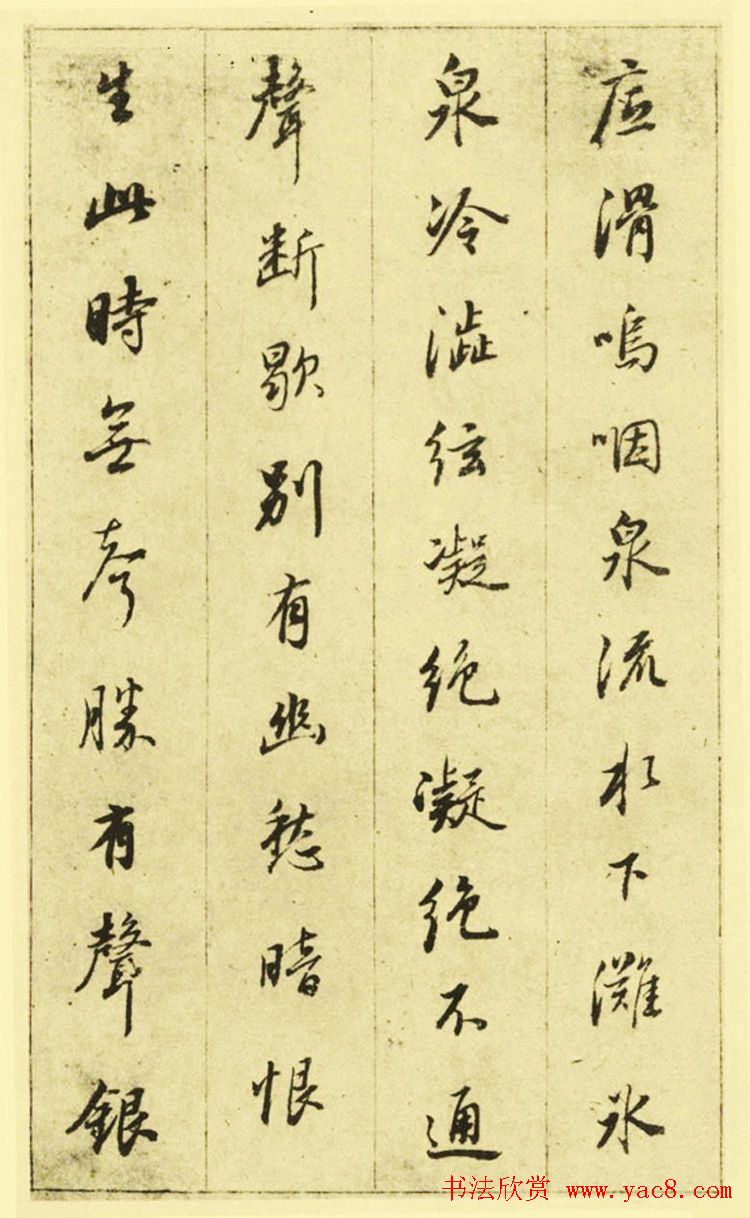 底滑嗚咽泉流水下灘氷
泉冷澁絃凝絶凝絶不通
聲断歇別有幽愁暗恨
生此時無声勝有聲銀
书法欣赏 www.yac8.com